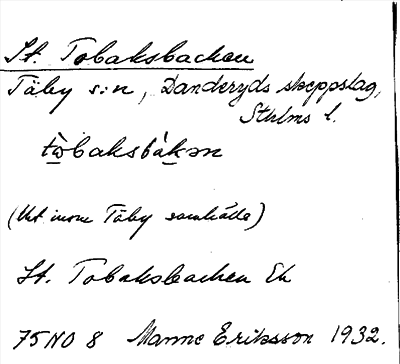 St. Tobaksbacken
Täby s:n, Danderyds skeppslag,
Sthlms l.
tò̲baksbák̲ən
(Ut inom Täby samhälle)
St. Tobaksbacken Ek
75 NO 8 Manne Eriksson 1932.